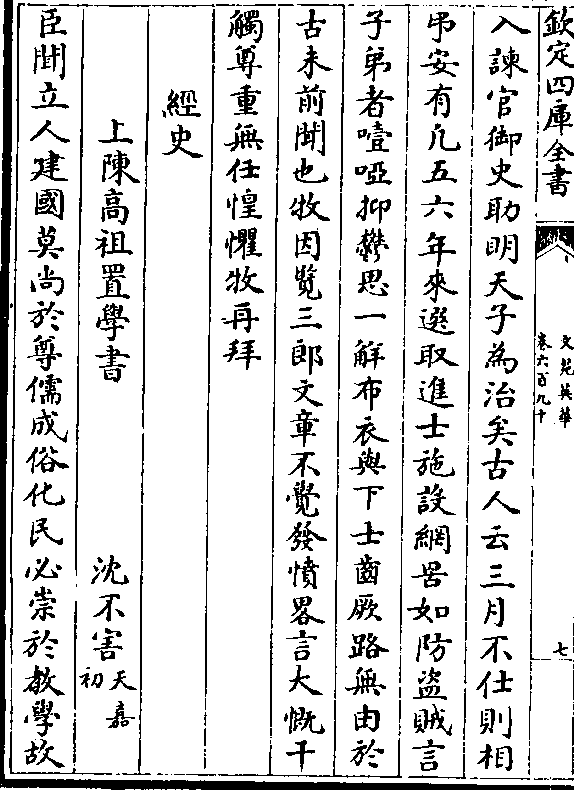 欽定四庫全書
文苑英華
卷六百九十
七
入諫官御史助明天子為治矣古人云三月不仕則相
弔安有凡五六年來選取進士施設網罟如防盜賊言
子弟者噎啞抑鬱思一解布衣與下士齒厥路無由於
古未前聞也牧因覽三郎文章不覺發憤畧言大慨干
觸尊重無任惶懼牧再拜
經史
上陳高祖置學書
沈不害
天嘉
初
臣聞立人建國莫尚於尊儒成俗化民必崇於教學故